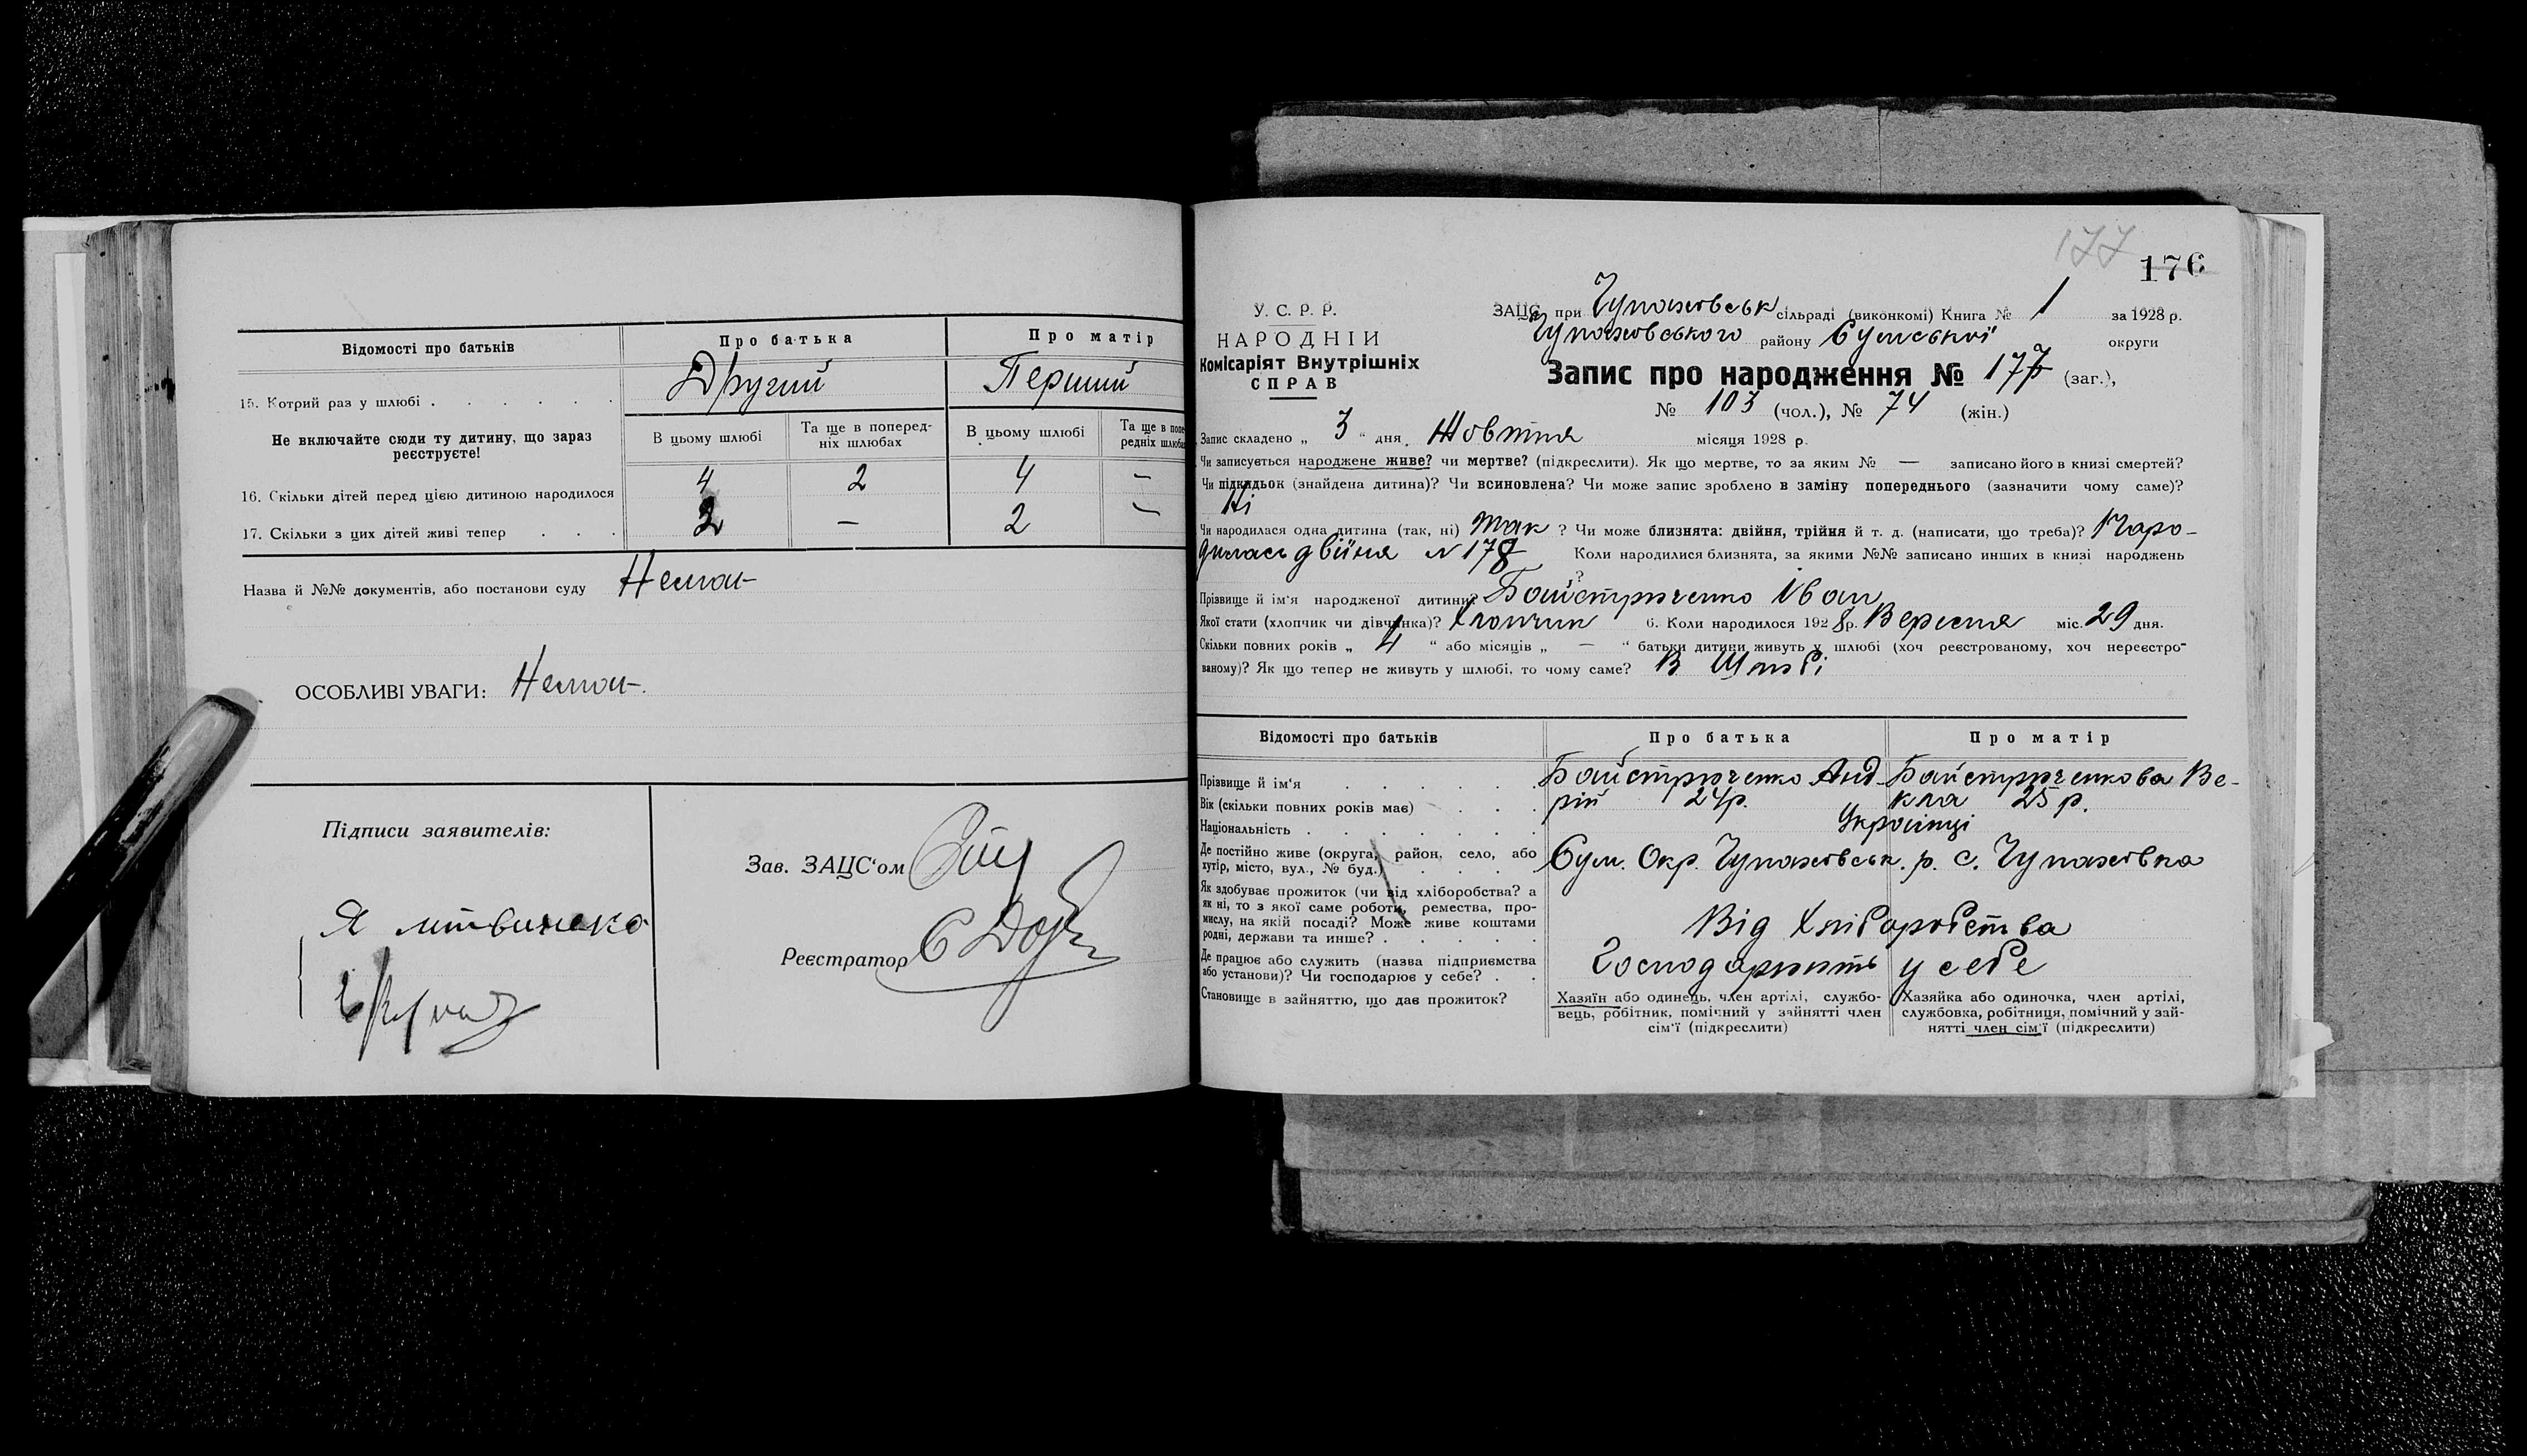 Відомості про батьків
Про батька
Про матір
15. Котрий раз у шлюбі . . . . . .
Другий
Перший
Не включайте сюди ту дитину, що зараз реєструєте!
В цьому шлюбі
Та ще в поперед-
ніх шлюбах
В цьому шлюбі
Та ще в попе
редніх шлюба
16. Скільки дітей перед цією дитиною народилося
4
2
4
—
17. Скільки з цих дітей живі тепер . . .
2
—
2
—
Назва й №№ документів, або постанови суду Немає
ОСОБЛИВІ УВАГИ: Немає.
Підписи заявителів:
Я литвиненко
Зав. ЗАЦС‘ом
Реєстратор
177
176
У. С. Р. Р.
НАРОДНІЙ
Комісаріят Внутрішніх
СПРАВ
ЗАЦС при Чупахівськ сільраді (виконкомі) Книга № 1 за 1928 р.
Чупахівського району Сумської округи
Запис про народження № 177 (заг.),
№ 103 (чол.), № 74 (жін.)
Запис складено „ 3 “ дня Жовтня місяця 1928 р.
Чи записується народжене живе? чи мертве? (підкреслити). Як що мертве, то за яким № — записано його в книзі смертей?
Чи підкидьок (знайдена дитина)? Чи всиновлена? Чи може запис зроблено в заміну попереднього (зазначити чому саме)?
Ні
Чи народилася одна дитина (так, ні) Так ? Чи може близнята: двійня, трійня й т. д. (написати, що треба)? Наро-
дилась двійня № 178 Коли народилися близнята, за якими №№ записано инших в книзі народжень
?
Прізвище й ім‘я народженої дитини? Байстрюченко Іван
Якої стати (хлопчик чи дівчинка)? Хлопчик 6. Коли народилося 1928 р. Вересня міс. 29 дня.
Скільки повних років „ 4 “ або місяців „ — “ батьки дитини живуть у шлюбі (хоч реєстрованому, хоч нереєстро-
ваному)? Як що тепер не живуть у шлюбі, то чому саме? В Шлюбі
Відомості про батьків
Про батька
Про матір
Прізвище й ім‘я . . . . . .
Байстрюченко Анд-
Байстрюченкова Ве-
Вік (скільки повних років має) . . .
рій 24р.
кла 25 р.
Національність . . . . . . .
Українці
Де постійно живе (округа, район, село, або
хутір, місто, вул., № буд.) . . . .
Сум. Окр. Чупахівськ. р. с. Чупахівка
Як здобуває прожиток (чи від хліборобства? а
як ні, то з якої саме роботи, ремества, про-
мислу, на якій посаді? Може живе коштами
родні, держави та инше? . . . . .
Від Хліборобства
Де працює або служить (назва підприємства
або установи)? Чи господарює у себе? . .
Господарюють у себе
Становище в зайняттю, що дає прожиток?
Хазяїн або одинець, член артілі, службо-
вець, робітник, помічний у зайнятті член
сім‘ї (підкреслити)
Хазяйка або одиночка, член артілі,
службовка, робітниця, помічний у зай-
нятті член сім‘ї (підкреслити)